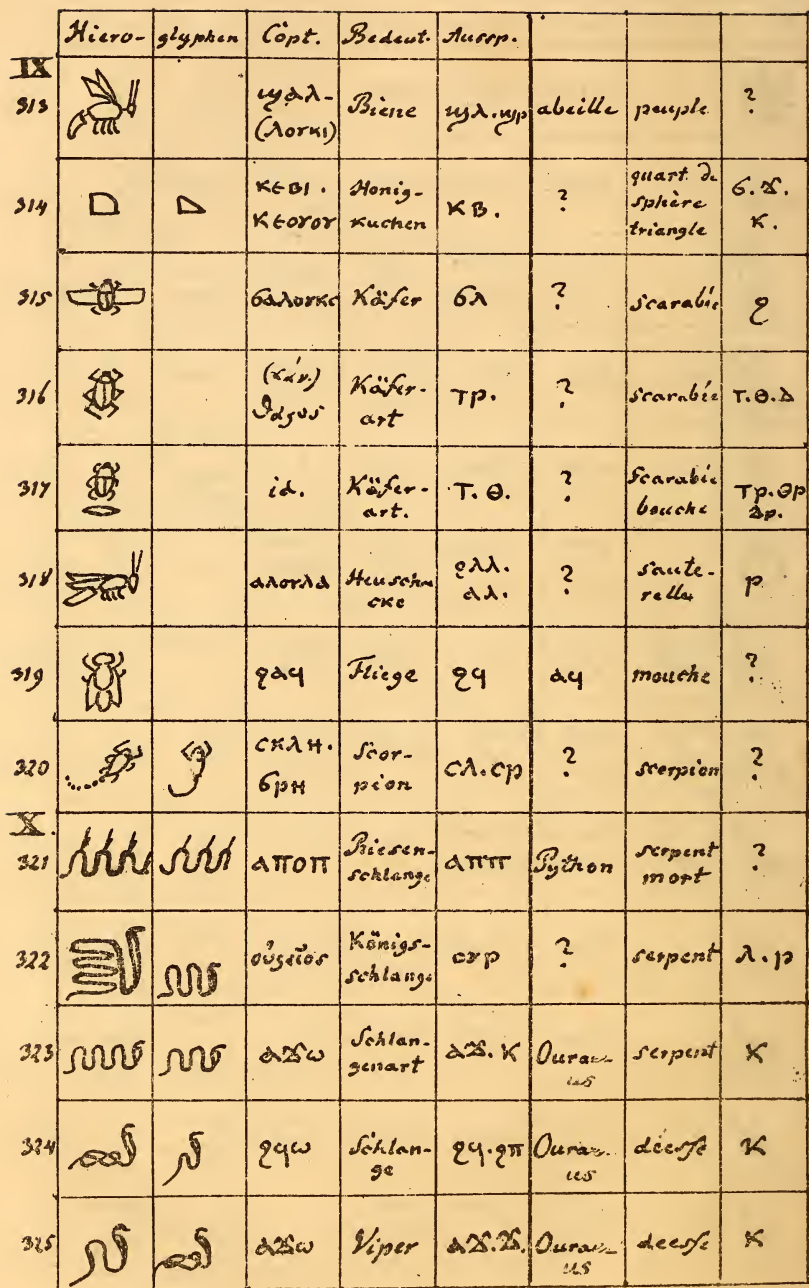 Hiero- glyphen Copt. Bedeut. Aussp.
IX
313 ϣαλ- (λοʀκι) Biene ϣλ.ϣρ abeille peuple ?
314 ⲕⲉⲃⲓ. ⲕⲉⲟⲩⲟⲩ Honig- kuchen ⲕⲃ. ? quart de sphère triangle ϭ.ϫ. ⲕ.
315 Käfer ϭⲗ ? scarabée ϩ
316 (κάν.) Käfer- art ⲧⲣ. ? scarabée ⲧ.ⲑ.ⲇ
317 id. Käfer- art. ⲧ.ⲑ. ? Scarabée bouche ⲧⲣ.ⲑⲣ ⲇⲣ.
318 Heuschre cke ϩⲗⲗ. ⲁⲗ. ? saute- relle ⲣ
319 ϩⲁϥ Fliege ϩϥ ⲁϥ mouche ?
320 ⲥⲕⲗⲏ. ϭⲣⲏ Scor- pion ⲥⲗ.ⲥⲣ ? scorpion ?
X.
321 ⲁⲡⲟⲡ Riesen- schlange ⲁⲡⲡ Python serpent mort ?
322 Königs- schlange ? serpent ⲗ.ⲣ
323 ⲁϫⲱ Schlan- genart ⲁϫ.ⲕ Ourae- us serpent ⲕ
324 ϩϥⲱ Schlan- ge ϩϥ.ϩⲡ Ourae- us déesse ⲕ
325 ⲁϫⲱ Viper ⲁϫ.ϫ. Ourae- us déesse ⲕ